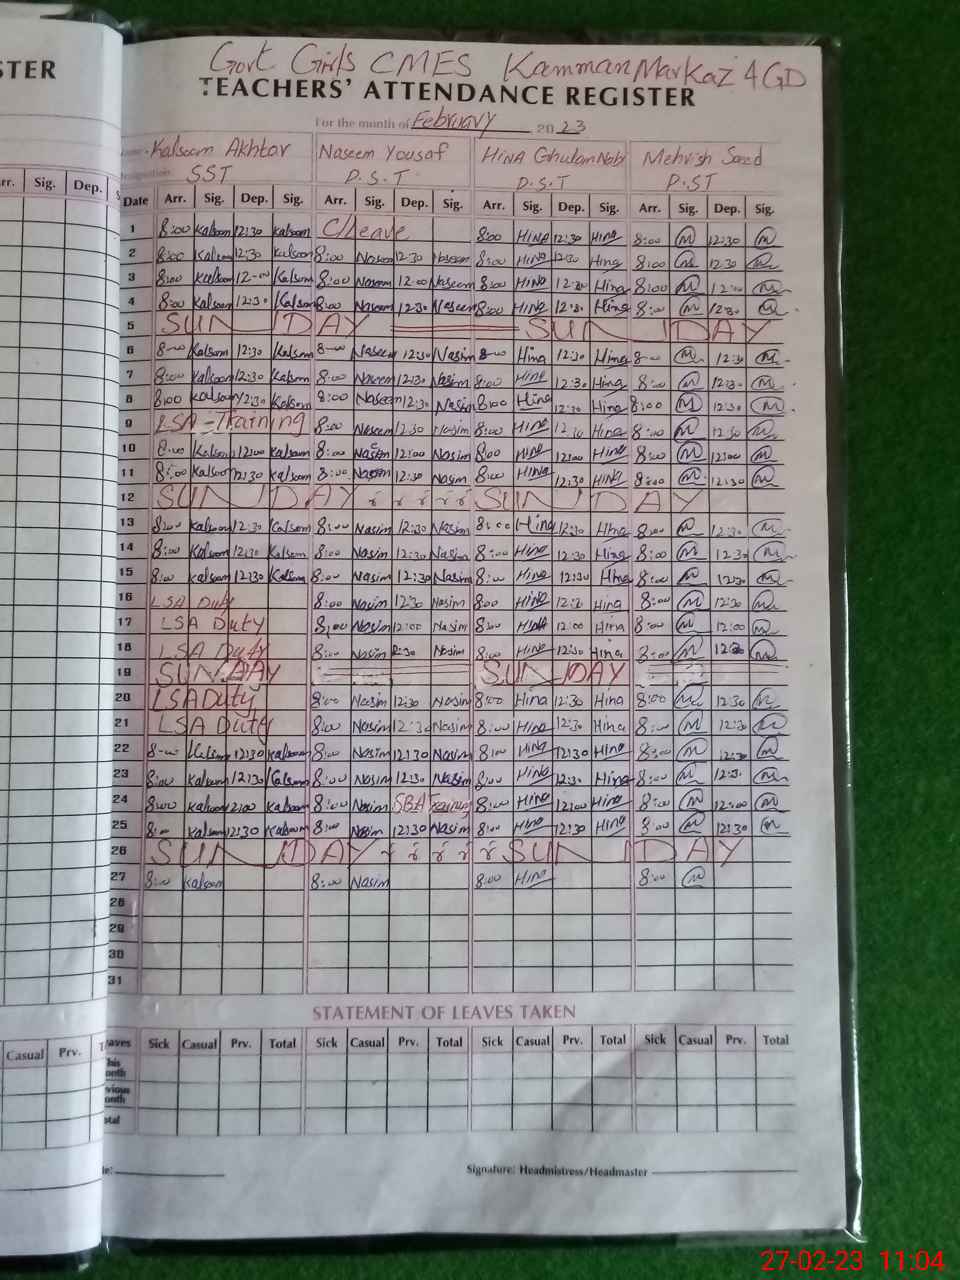 Govt. Girls CMES Kamman Markaz 4 GD
STER TEACHERS' ATTENDANCE REGISTER
For the month of February 2023
Kalsoom Akhtar Naseem Yousaf HINA Ghulam Nabi Mehrish Saeed
SST P.S.T P.S.T P.ST
rr. Sig. Dep. S Date Arr. Sig. Dep. Sig. Arr. Sig. Dep. Sig. Arr. Sig. Dep. Sig. Arr. Sig. Dep. Sig.
1 8:00 Kalsoom 12:30 Kalsoom C/Leave 8:00 HINA 12:30 Hina 8:00 M 12:30 M
2 8:00 Kalsoom 12:30 Kalsoom 8:00 Naseem 12:30 Naseem 8:00 HINA 12:30 Hina 8:00 M 12:30 M
3 8:00 Kalsoom 12-00 Kalsoom 8:00 Naseem 12:00 Naseem 8:00 HINA Hina 8:00 M M
4 8:00 Kalsoom 12:30 Kalsoom 8:00 Naseem 12:30 Naseem 8:00 HINA 12:30 Hina 8:00 M 12:30 M
5 SUNDAY SUNDAY
6 8-00 Kalsoom 12:30 Kalsoom 8-00 Naseem 12:30 Nasim 8-00 Hina 12:30 Hina 8-00 M 12:30 M
7 8:00 Kalsoom 12:30 Kalsoom 8:00 Naseem 12:30 Nasim 8:00 Hina 12:30 Hina 8:00 M 12:30 M
8 8:00 Kalsoom 12:30 Kalsoom 8:00 Naseem 12:30 Nasim 8:00 Hina 12:30 Hina 8:00 M 12:30 M
9 LSA - Training 8:00 Naseem 12:30 Nasim 8:00 Hina 12:30 Hina 8:00 M 12:30 M
10 8:00 Kalsoom 12:00 Kalsoom 8:00 Nasim 12:00 Nasim 8:00 HINA 12:00 Hina 8:00 M 12:00 M
11 8:00 Kalsoom 12:30 Kalsoom 8:00 Nasim 12:30 Nasim 8:00 HINA 12:30 HINA 8:00 M 12:30 M
12 SUNDAY SUNDAY
13 8:00 Kalsoom 12:30 Kalsoom 8:00 Nasim 12:30 Nasim 8:00 Hina 12:30 Hina 8:00 M 12:30 M
14 8:00 Kalsoom 12:30 Kalsoom 8:00 Nasim 12:30 Nasim 8:00 Hina 12:30 Hina 8:00 M 12:30 M
15 8:00 Kalsoom 12:30 Kalsoom 8:00 Nasim 12:30 Nasim 8:00 Hina 12:30 Hina 8:00 M 12:30 M
16 LSA Duty 8:00 Nasim 12:30 Nasim 8:00 HINA 12:30 Hina 8:00 M 12:30 M
17 LSA Duty 8:00 Nasim 12:00 Nasim 8:00 HINA 12:00 Hina 8:00 M 12:00 M
18 LSA Duty 8:00 Nasim Nasim 8:00 HINA 12:30 Hina 8:00 M M
19 SUNDAY SUNDAY
20 LSA Duty 8:00 Nasim 12:30 Nasim 8:00 Hina 12:30 Hina 8:00 M 12:30 M
21 LSA Duty 8:00 Nasim 12:30 Nasim 8:00 Hina 12:30 Hina 8:00 M 12:30 M
22 8-00 Kalsoom 12:30 Kalsoom 8:00 Nasim 12:30 Nasim 8:00 HINA 12:30 Hina 8:00 M 12:30 M
23 8:00 Kalsoom 12:30 Kalsoom 8:00 Nasim 12:30 Nasim 8:00 Hina 12:30 Hina 8:00 M 12:30 M
24 8:00 Kalsoom 12:00 Kalsoom 8:00 Nasim SBA Training 8:00 Hina 12:00 Hina 8:00 M 12:00 M
25 8:00 Kalsoom 12:30 Kalsoom 8:00 Nasim 12:30 Nasim 8:00 Hina 12:30 Hina 8:00 M 12:30 M
26 SUNDAY SUNDAY
27 8:00 Kalsoom 8:00 Nasim 8:00 Hina 8:00 M
28
29
30
31
STATEMENT OF LEAVES TAKEN
Casual Prv. T aves Sick Casual Prv. Total Sick Casual Prv. Total Sick Casual Prv. Total Sick Casual Prv. Total
his
onth
vious
onth
otal
te: Signature: Headmistress/Headmaster
27-02-23 11:04